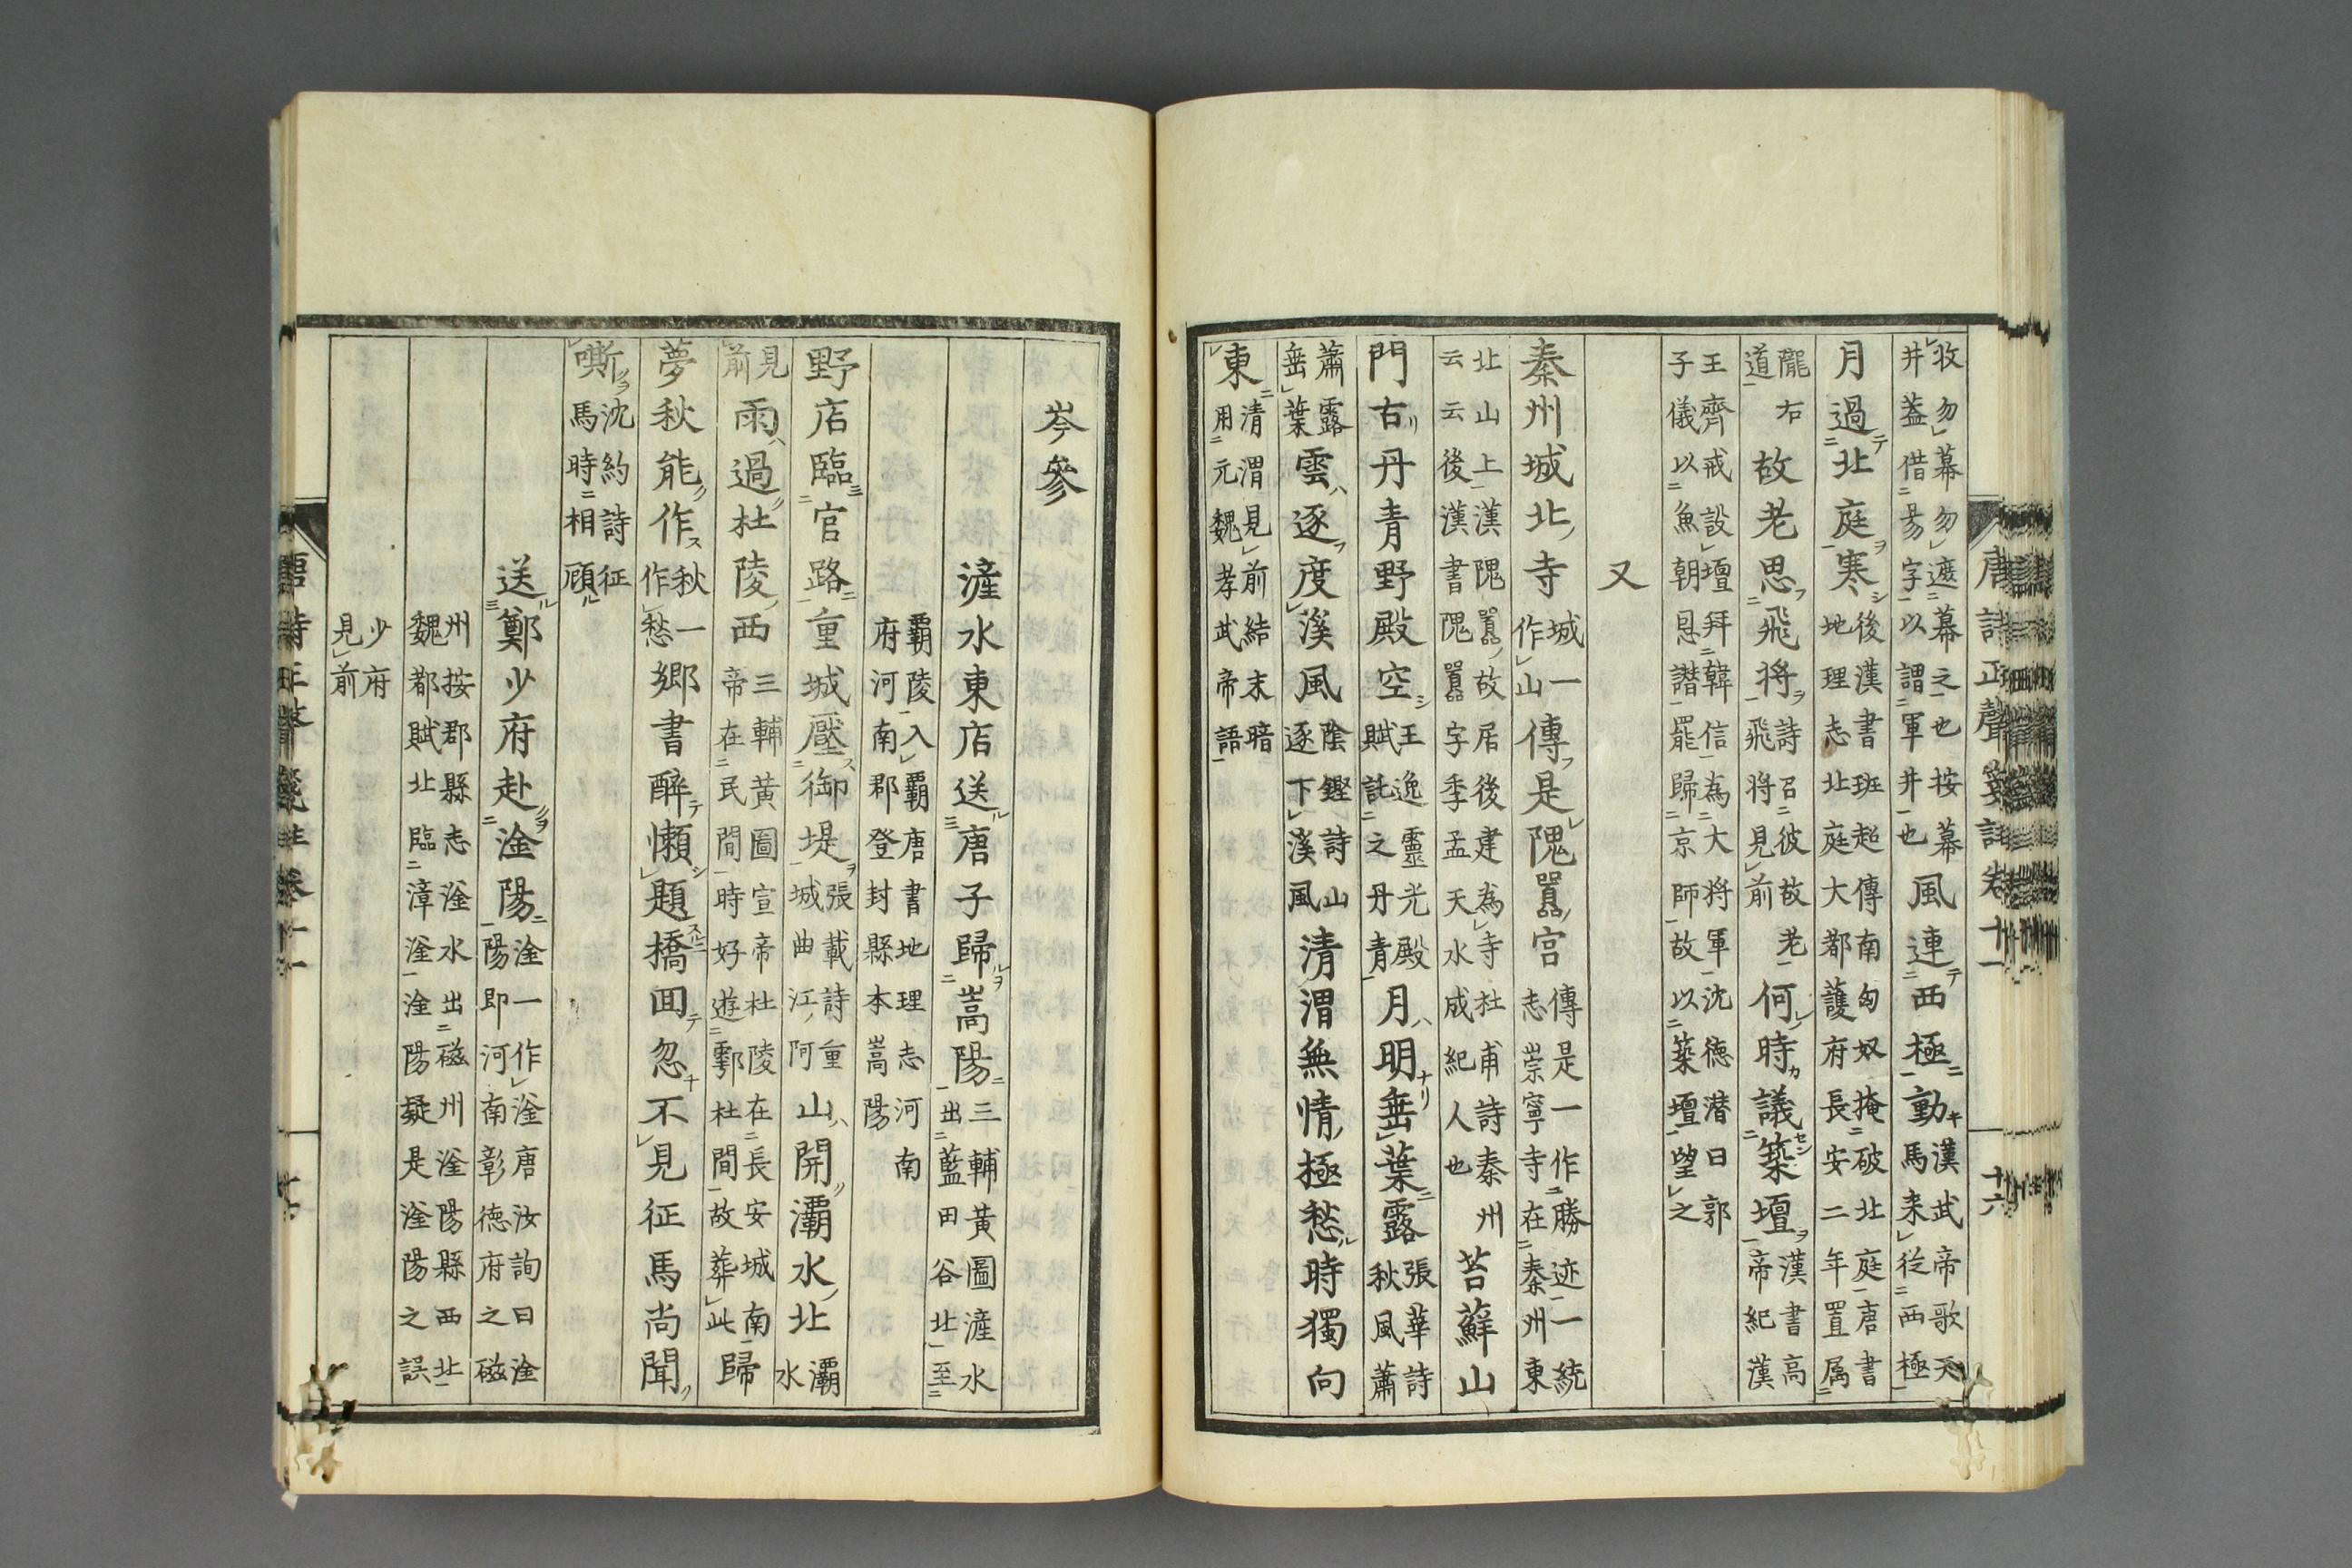 唐詩正聲箋註卷十一 十六
牧勿幕勿遮幕之也按幕井蓋借昜字以謂軍井也風連西極動漢武帝歌天馬来従西極
月過北庭寒後漢書班超傳南匈奴掩破北庭唐書地理志北庭大都護府長安二年置属
隴右道故老思飛将詩召彼故老飛将見前何時議築壇漢書高帝紀漢
王齊戒設壇拜韓信為大将軍沈徳潜曰郭子儀以魚朝恩譖罷歸京師故以築壇望之
又
秦州城北寺城一作山傳是隗囂宮傳是一作勝迹一統志崇寧寺在秦州東
北山上漢隗囂故居後建為寺杜甫詩秦州云云後漢書隗囂字季孟天水成紀人也苔蘚山
門古丹青野殿空王逸靈光殿賦託之丹青月明垂葉露張華詩秋風蕭
蕭露垂葉雲逐度溪風陰鏗詩山逐下溪風清渭無情極愁時獨向
東清渭見前結末暗用元魏孝武帝語
岑參
滻水東店送唐子歸嵩陽三輔黃圖滻水出藍田谷北至
覇陵入覇唐書地理志河南府河南郡登封縣本嵩陽
野店臨官路重城壓御堤張載詩重城曲江阿山開灞水北灞水
見前雨過杜陵西三輔黃圖宣帝杜陵在長安城南帝在民間時好遊鄠杜間故葬此歸
夢秋能作秋一作愁鄉書醉懶題橋回忽不見征馬尚聞
嘶沈約詩征馬時相顧
送鄭少府赴淦陽淦一作滏唐汝詢曰淦陽即河南彰徳府之磁
州按郡縣志滏水出磁州滏陽縣西北魏都賦北臨漳滏淦陽疑是滏陽之誤
少府見前